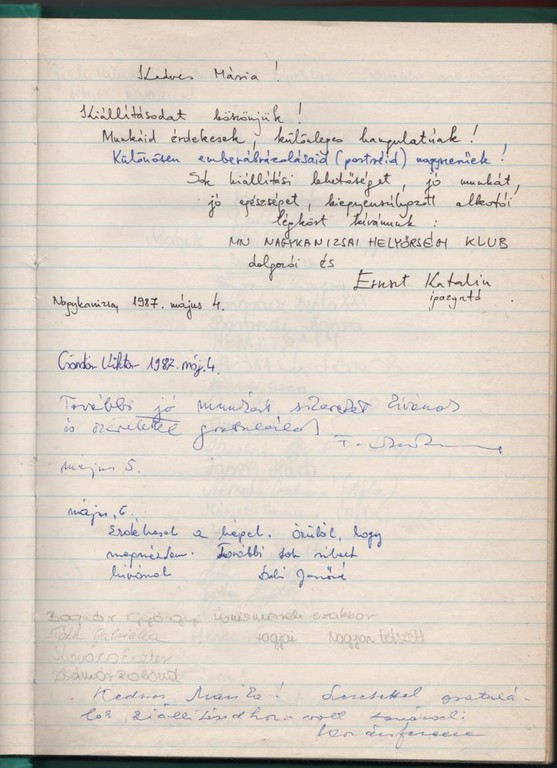 Kedves Mária!
Kiállításodat köszönjük!
Munkáid érdekesek, különleges hangulatúak!
Különösen emberábrázolásaid (portréid) nagyszerűek!
Sok kiállítási lehetőséget, jó munkát,
jó egészséget, kiegyensúlyozott alkotói
légkört kívánunk:
MN NAGYKANIZSAI HELYŐRSÉGI KLUB
dolgozói és
Ernszt Katalin
igazgató
Nagykanizsa, 1987. május 4.
Viktor 1987. máj. 4.
További jó munkát sikereket kívánok
és szeretettel gratulálok
május 5.
május 6.
Érdekesek a képek. Örülök, hogy
megnéztem. További sok sikert
kívánok Jenőné
Bognár Györgyi honismereti szakkör
Tóth Gabriella tagjai Nagyon tetszett
Kovács Eszter
Kedves Mariká! Szeretettel gratulá-
lok kiállításodhoz volt tanárod: